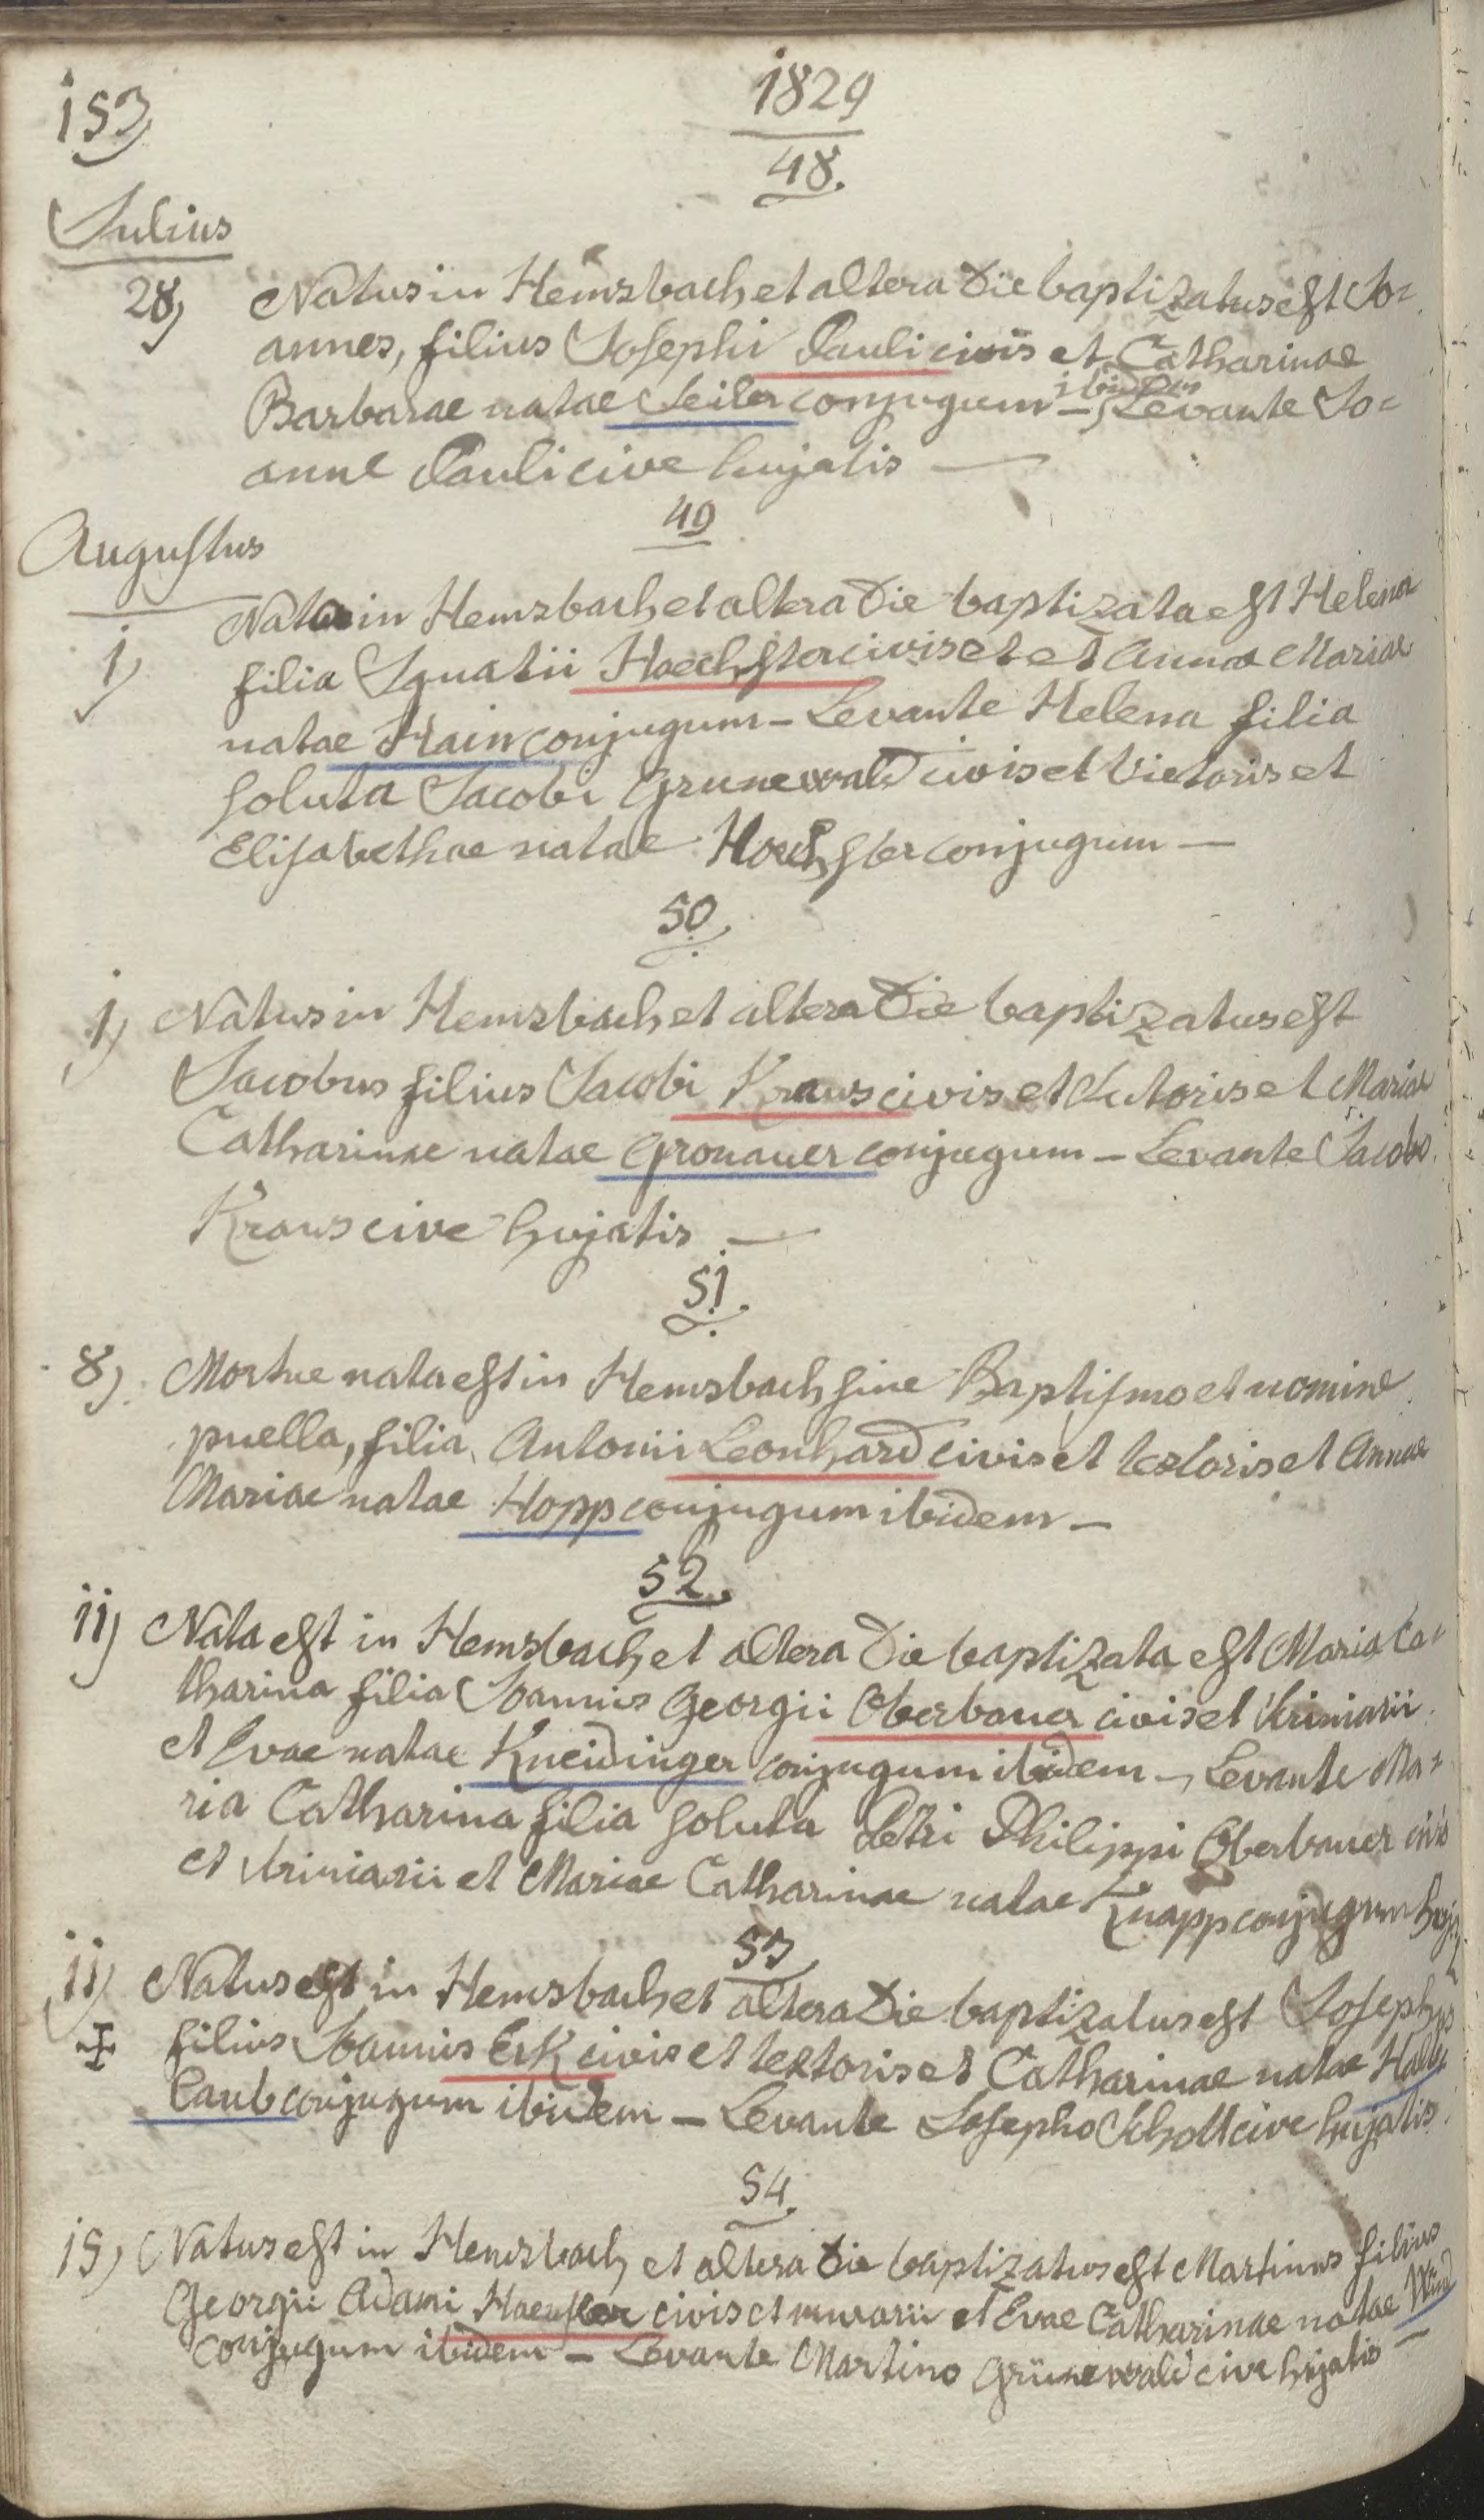 153
1829
48.
Julius
28) Natus in Hemsbach et altera die baptizatus est Jo=
annes, filius Josephi Pauli civis et Catharinae
ibidem
Barbarae natae Seiler conjugum –, Levante Jo=
anne Pauli cive hujatis —
49
Augustus
1) Nata in Hemsbach et altera die baptizata est Helena
filia Ignatii Haechster civis et et Annae Mariae
natae Hain conjugum – Levante Helena filia
soluta Jacobi Grunewald civis et Vietoris et
Elisabethae natae Hoechster conjugum —
50.
1) Natus in Hemsbach et altera die baptizatus est
Jacobus filius Jacobi Kraus civis et Sutoris et Mariae
Catharinae natae Gronauer conjugum – Levante Jacobo
Kraus cive hujatis —
51.
8) Mortue nata est in Hemsbach sine Baptismo et nomine
puella, filia Antonii Leonhard civis et textoris et Annae
Mariae natae Hopp conjugum ibidem –
52.
11) Nata est in Hemsbach et altera die baptizata est Maria Ca=
tharina filia Joannis Georgii Oberbauer civis et
et Evae natae Kneidinger conjugum ibidem –, Levante Ma=
ria Catharina filia soluta Petri Philippi Oberbauer civis
et et Mariae Catharinae natae Knapp conjugum
53
11) Natus est in Hemsbach et altera die baptizatus est Josephus
filius Joannis Erk civis et textoris et Catharinae natae
laub conjugum ibidem – Levante Josepho Scholl cive hujatis.
54.
15) Natus est in Hemsbach et altera die baptizatus est Martinus filius
Georgii Adami civis et murarii et Evae Catharinae natae
conjugum ibidem – Levante Martino Grünewald cive hujatis –